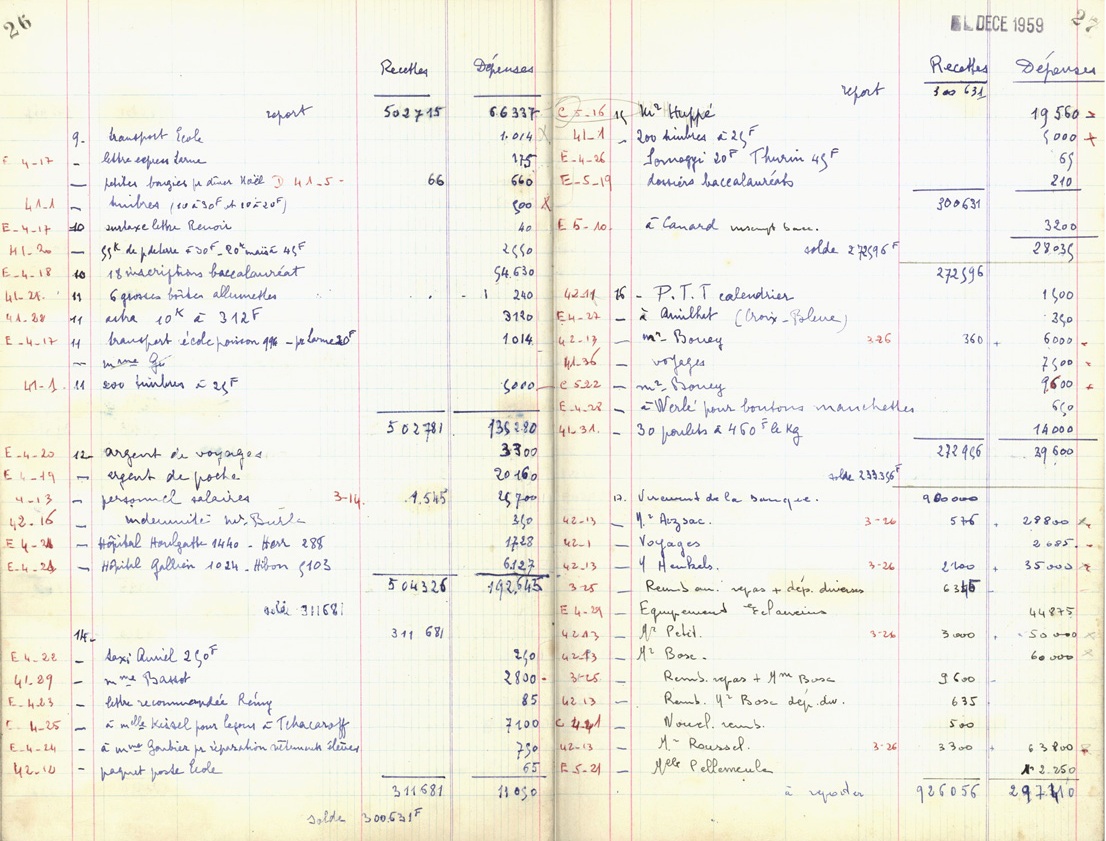 26
Recettes Dépenses
report 502715 66337
9- transport Ecole 1.014
E-4-17 - lettre express Larme 175
- petites bougies pr dîner Noël D 41-5- 66 660
41-1 - timbres (10 à 30F et 10 à 20F) 500 X
E-4-17 10 surtaxe lettre Renoir 40
41-20 - 55K de p de terre à 30F - 20K maïs à 45F 2550
E-4-18 10 18 inscriptions baccalauréat 54.630
41-21 11 6 grosses boîtes allumettes 240
41-28 11 astra 10K à 312F 3120
E-4-17 11 transport école poisson 996 - pr Larme 20F 1014
- mme Gé
41-1. 11 200 timbres à 25F 5000
502781 135280
E-4-20 12- argent de voyages 3300
E-4-19 - argent de poche 20160
4-13 - personnel salaires 3-14. 1.545 25700
42-16 indemnité 350
E-4-21 - Hôpital Houlgatte 1440 - Harr 288 1728
E-4-21 - Hôpital Gallien 1024 - Hibon 5103 6127
504326 192.645
solde 311681
14- 311 681
E-4-22 - taxi Auriel 250F 250
41-29 - mme Bassot 2800 -
E-4-23 - lettre recommandée Rémy 85
E-4-25 - à melle Kissel pour leçons à Tchacaroff 7100
E-4-24 - à mme Goubier pr réparation vêtements élèves 750
42-10 - paquet poste Ecole 65
311681 11050
solde 300.631F
DECE 1959 27
Recettes Dépenses
report 300 631
C 5-16 15 Mr Huppé 19560
41-1 - 200 timbres à 25F 5000
E-4-26 20F Thurin 45F 65
E-5-19 dossiers baccalauréats 210
300631
E 5-10. à Canard inscript bacc. 3200
solde 272596F 28035
272596
42-11 16 - P.T.T calendrier 1500
E4-27 - à Amilhet (Croix-Bleue) 350
42-13 - mr Bouey 3.26 360 6000
41-36 voyages 7500
C 5-22 - mr Bouey 9600
E-4-28 - à Werlé pour boutons manchettes 650
41-31. - 30 poulets à 460F le Kg 14000
272956 39600
solde 233356F
17. Virement de la banque. 900000
42-13 - Mr Auzsac. 3-26 576 28800
42-1 - Voyages 2685.
42-13 - Henkels. 3-26 2100 35000
3-25 Remb an. repas + dép. divers 6345
E 4-29 - Equipement Eclaireurs 44875
42-13 - Mr Petit. 3-26 3000 50000
42-13 - Mr Bosc. 60000
3-25 Remb. repas + Mme Bosc 9600
42.13 Remb. Mr Bosc dép. div. 635
Nouvel. remb. 500
42-13 - Mr Roussel. 3-26 3300 63800
E 5-21 - Melle Pellemeule 2.250
à reporter 926056 297410